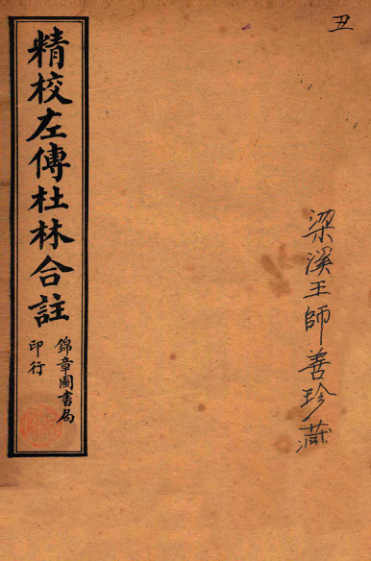 丑
梁溪王師善珍藏
精校左傳杜林合註
錦章圖書局
印行